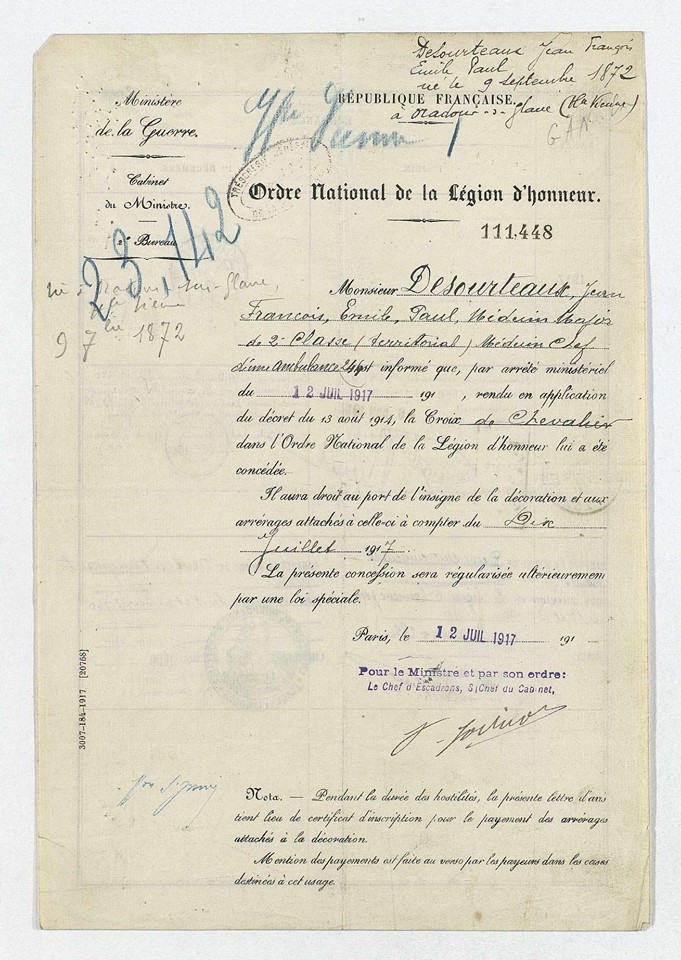 Desourteaux Jean François
Emile Paul
né le 9 septembre 1872
à Oradour-s-Glane (Hte Vienne)
GAN
Ministère
de la Guerre.
Cabinet
du Ministre.
2e Bureau
RÉPUBLIQUE FRANÇAISE.
Hte Vienne
Ordre National de la Légion d'honneur.
111.448
23,142
né à Oradour-sur-Glane,
Hte Vienne
9 7bre 1872
Monsieur Desourteaux, Jean
François, Emile, Paul, Médecin Major
de 2e Classe (territorial) Médecin Chef
ambulance est informé que, par arrêté ministériel
du 12 JUIL 1917 191 , rendu en application
du décret du 13 août 1914, la Croix de Chevalier
dans l'Ordre National de la Légion d'honneur lui a été
concédée.
Il aura droit au port de l'insigne de la décoration et aux
arrérages attachés à celle-ci à compter du Dix
Juillet 1917.
La présente concession sera régularisée ultérieurement
par une loi spéciale.
Paris, le 12 JUIL 1917 191
Pour le Ministre et par son ordre:
Le Chef d'Escadrons, S/Chef du Cabinet,
3007-184-1917. [20768]
Nota. — Pendant la durée des hostilités, la présente lettre d'avis
tient lieu de certificat d'inscription pour le payement des arrérages
attachés à la décoration.
Mention des payements est faite au verso par les payeurs dans les cases
destinées à cet usage.